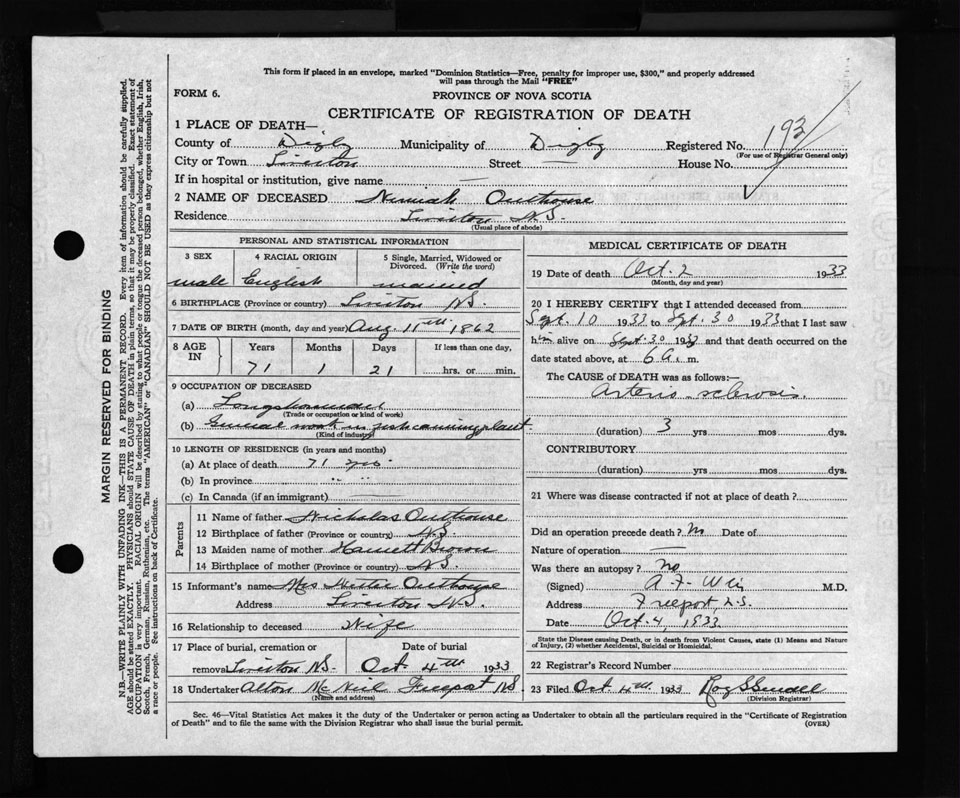 This form if placed in an envelope, marked "Dominion Statistics—Free, penalty for improper use, $300," and properly addressed
will pass through the Mail "FREE"
FORM 6.
PROVINCE OF NOVA SCOTIA
CERTIFICATE OF REGISTRATION OF DEATH
1 PLACE OF DEATH—
County of Digby Municipality of Digby Registered No. 193
(For use of Registrar General only)
City or Town Tiverton Street — House No.
If in hospital or institution, give name —
2 NAME OF DECEASED Outhouse
Residence Tiverton N.S.
(Usual place of abode)
PERSONAL AND STATISTICAL INFORMATION
3 SEX 4 RACIAL ORIGIN 5 Single, Married, Widowed or Divorced. (Write the word)
male English married
6 BIRTHPLACE (Province or country) Tiverton N.S.
7 DATE OF BIRTH (month, day and year) Aug. 11th 1862
8 AGE IN Years Months Days If less than one day,
71 1 21 hrs. or min.
9 OCCUPATION OF DECEASED
(a) Longshoreman
(Trade or occupation or kind of work)
(b) General work in fish canning plant
(Kind of industry)
10 LENGTH OF RESIDENCE (in years and months)
(a) At place of death 71 yrs.
(b) In province " "
(c) In Canada (if an immigrant)
Parents
11 Name of father Nicholas Outhouse
12 Birthplace of father (Province or country) N.S.
13 Maiden name of mother Harriett Brown
14 Birthplace of mother (Province or country) N.S.
15 Informant's name Mrs Hettie Outhouse
Address Tiverton N.S.
16 Relationship to deceased Wife
17 Place of burial, cremation or Date of burial
removal Tiverton N.S. Oct 4th 1933
18 Undertaker Alton McNeil Freeport N.S.
(Name and address)
MEDICAL CERTIFICATE OF DEATH
19 Date of death Oct. 2 1933
(Month, day and year)
20 I HEREBY CERTIFY that I attended deceased from
Sept. 10 1933 to Sept. 30 1933 that I last saw
him alive on Sept. 30 1933 and that death occurred on the
date stated above, at 6 a. m.
The CAUSE of DEATH was as follows:—
Arterio sclerosis.
(duration) 3 yrs mos dys.
CONTRIBUTORY
(duration) yrs mos dys.
21 Where was disease contracted if not at place of death ?
Did an operation precede death ? No Date of
Nature of operation —
Was there an autopsy ? No
(Signed) A. F. Weir M.D.
Address Freeport, N.S.
Date Oct. 4, 1933
State the Disease causing Death, or in death from Violent Causes, state (1) Means and Nature
of Injury, (2) whether Accidental, Suicidal or Homicidal.
22 Registrar's Record Number
23 Filed Oct 4th 1933
(Division Registrar)
Sec. 46—Vital Statistics Act makes it the duty of the Undertaker or person acting as Undertaker to obtain all the particulars required in the "Certificate of Registration
of Death" and to file the same with the Division Registrar who shall issue the burial permit. (OVER)
MARGIN RESERVED FOR BINDING
N.B.—WRITE PLAINLY WITH UNFADING INK—THIS IS A PERMANENT RECORD. Every item of information should be carefully supplied.
AGE should be stated EXACTLY. PHYSICIANS should STATE CAUSE OF DEATH in plain terms, so that it may be properly classified. Exact statement of
OCCUPATION is very important. RACIAL ORIGIN will be described by stating to what people or tongue the deceased person belonged, whether English, Irish,
Scotch, French, German, Russian, Ruthenian, etc. The terms "AMERICAN" or "CANADIAN" SHOULD NOT BE USED as they express citizenship but not
a race or people. See instructions on back of Certificate.